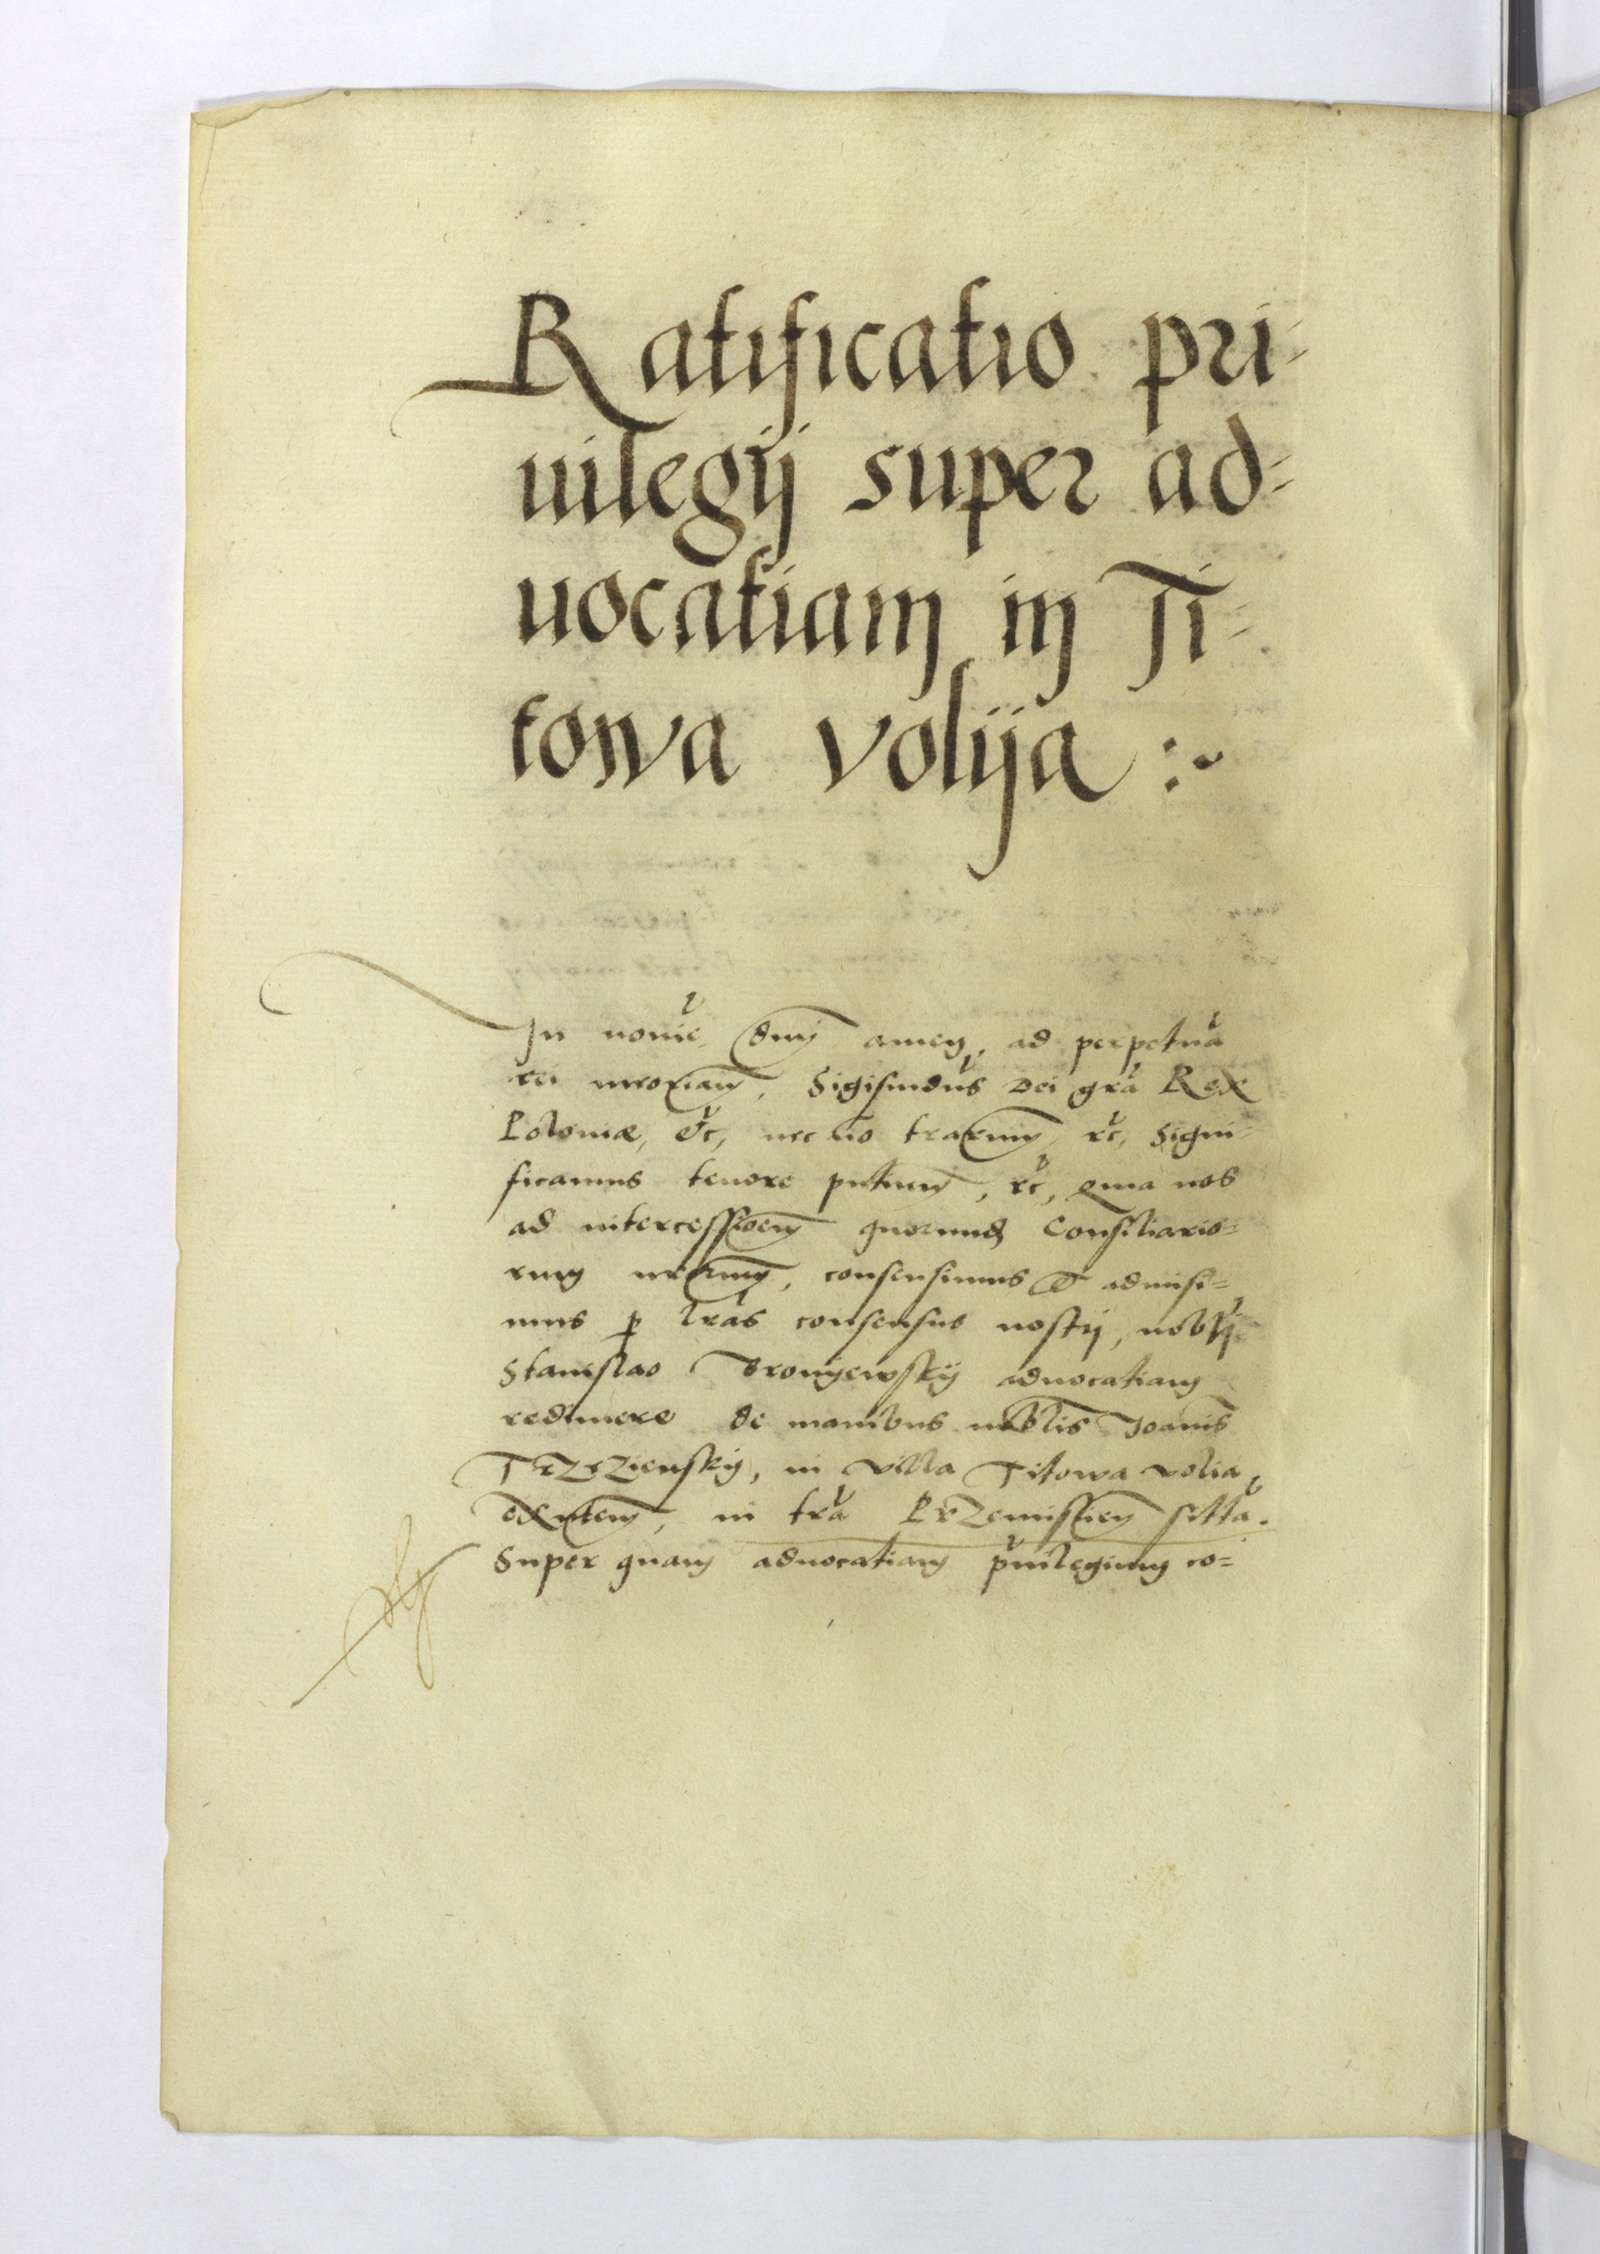 Ratificatio pri-
uilegij super ad-
uocatiam in Ti-
towa volija :~
In nomīe dnij amen, ad perpetuā
rei mroriam, Sigismdūs Dei grā Rex
Poloniæ, etc, nec nō trarum, rc, Signi-
ficamus tenore pntium, rc, Quia nos
ad intercessioem quorund Consiliario-
rum nrorum, consensimus et admisi-
mus p lrās consensus nostrj, nobli
Stanislao Bronijewskij aduocatiam
redimere de manibus noblis Joānis
Trzczienskij, in villa Titowa volia,
exntem, in trā Przemislien sittā.
Super quam aduocatiam priuilegium co-